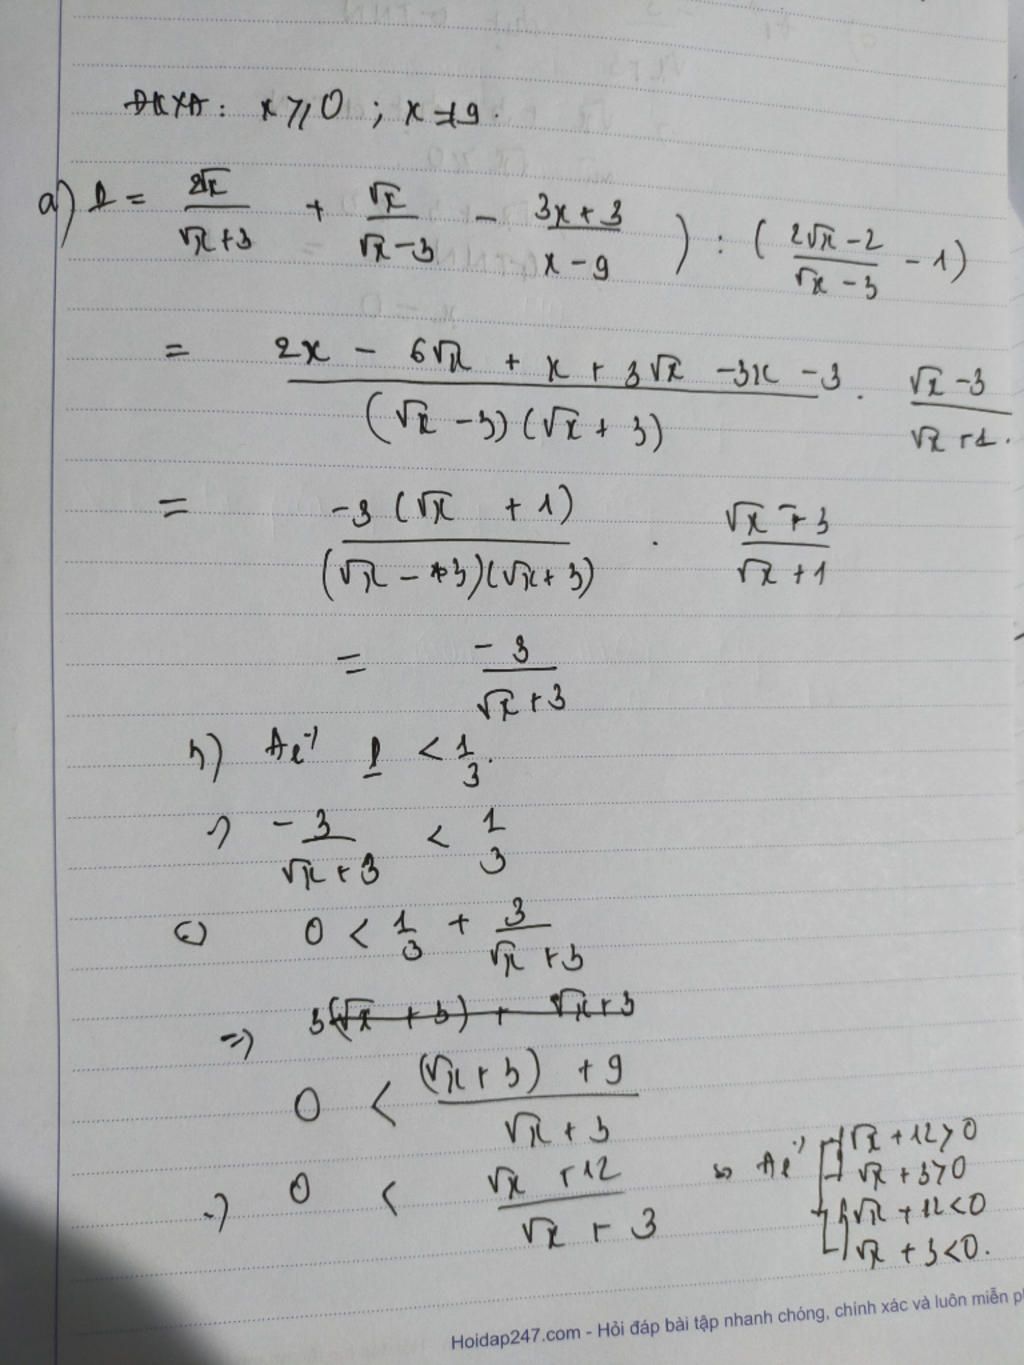 ĐKXĐ: x ≥ 0 ; x ≠ 9.
a) P = 2√x/(√x+3) + √x/(√x-3) - (3x+3)/(x-9) ) : ( (2√x-2)/(√x-3) - 1)
= (2x - 6√x + x + 3√x - 3x - 3)/((√x-3)(√x+3)) . (√x-3)/(√x+1).
= -3(√x + 1)/((√x-3)(√x+3)) . (√x-3)/(√x+1)
= -3/(√x+3)
b) Để P < 1/3.
=> -3/(√x+3) < 1/3
<=> 0 < 1/3 + 3/(√x+3)
=> 3(√x+3) + √x+3
0 < ((√x+3) + 9)/(√x+3)
=> 0 < (√x+12)/(√x+3)
=> Để √x+12>0
√x+3>0
√x+12<0
√x+3<0.
Hoidap247.com - Hỏi đáp bài tập nhanh chóng, chính xác và luôn miễn